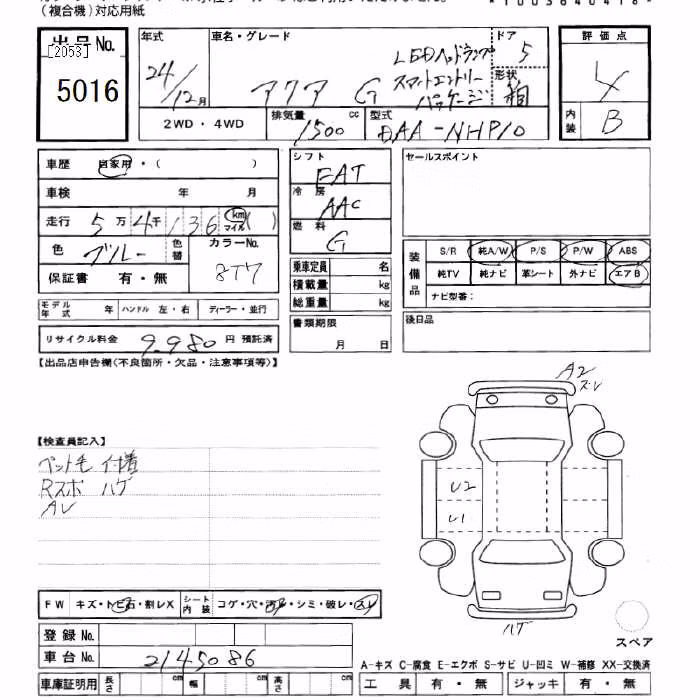 (複合機)対応用紙
出品No.
[2053]
5016
年式
24/12月
車名・グレード
アクア G
LEDヘッドランプ
スマートエントリー
パッケージ
ドア
5
形状
箱
評価点
4
内装
B
2WD・4WD
排気量
1500 cc
型式
DAA-NHP10
車歴 自家用・( )
車検 年 月
走行 5万4千136 km マイル( )
色 ブルー 色替
カラーNo.
8T7
保証書 有・無
モデル年式 年 ハンドル 左・右 ディーラー・並行
リサイクル料金 9,980 円 預託済
シフト
FAT
冷房
AAC
燃料
G
乗車定員 名
積載量 kg
総重量 kg
書類期限
月 日
セールスポイント
装備品
S/R 純A/W P/S P/W ABS
純TV 純ナビ 革シート 外ナビ エアB
ナビ型番:
後日品
【出品店申告欄(不良箇所・欠品・注意事項等)】
A2
ズレ
【検査員記入】
ペット毛 付着
Rスポ ハゲ
AV
U2
U1
ハゲ
スペア
FW キズ・トビ石・割レX
シート内装 コゲ・穴・汚レ・シミ・破レ・スレ
登録No.
車台No. 2145086
車庫証明用 長さ cm 幅 cm 高さ cm
A-キズ C-腐食 E-エクボ S-サビ U-凹ミ W-補修 XX-交換済
工具 有・無 ジャッキ 有・無